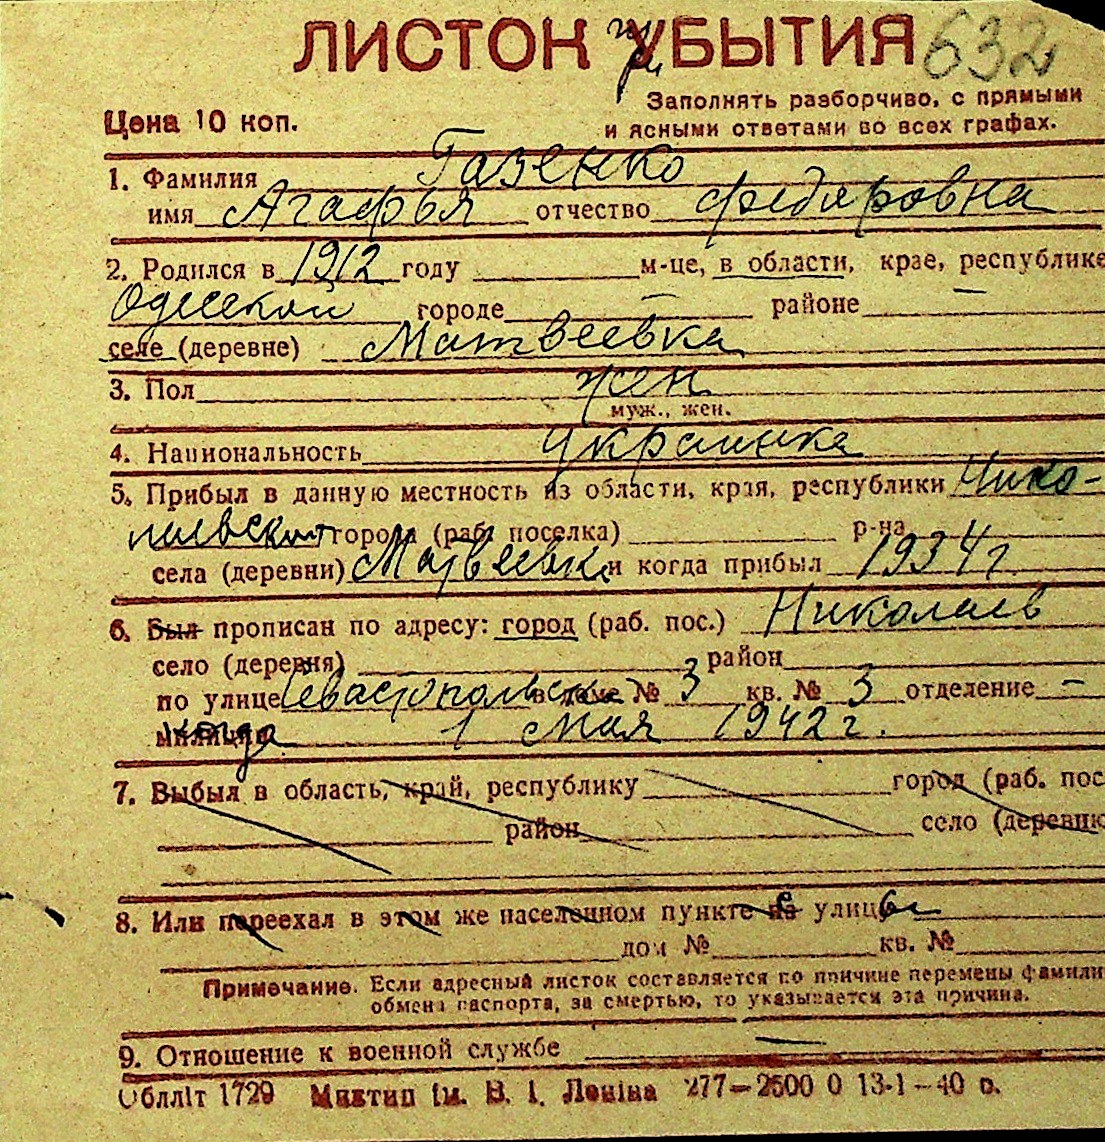 ЛИСТОК при УБЫТИЯ 632
Цена 10 коп.
Заполнять разборчиво, с прямыми
и ясными ответами во всех графах.
1. Фамилия Газенко
имя Агафья отчество Федяровна
2. Родился в 1912 году м-це, в области, крае, республике
Одесской городе — районе —
селе (деревне) Матвеевка
3. Пол жен
муж., жен.
4. Национальность украинка
5. Прибыл в данную местность из области, края, республики Нико-
лаевской города (раб. поселка) р-на
села (деревни) Матвеевки и когда прибыл 1934 г
6. Был прописан по адресу: город (раб. пос.) Николаев
село (деревня) район
по улице Севастопольск в доме № 3 кв. № 3 отделение —
милиции когда 1 мая 1942 г.
7. Выбыл в область, край, республику город (раб. пос
район село (деревню
8. Или переехал в этом же населенном пункте с на улицы
дом № кв. №
Примечание. Если адресный листок составляется по причине перемены фамили
обмена паспорта, за смертью, то указывается эта причина.
9. Отношение к военной службе —
Облліт 1729 Миктип ім. В. І. Леніна 277—2500 0 13-1—40 о.